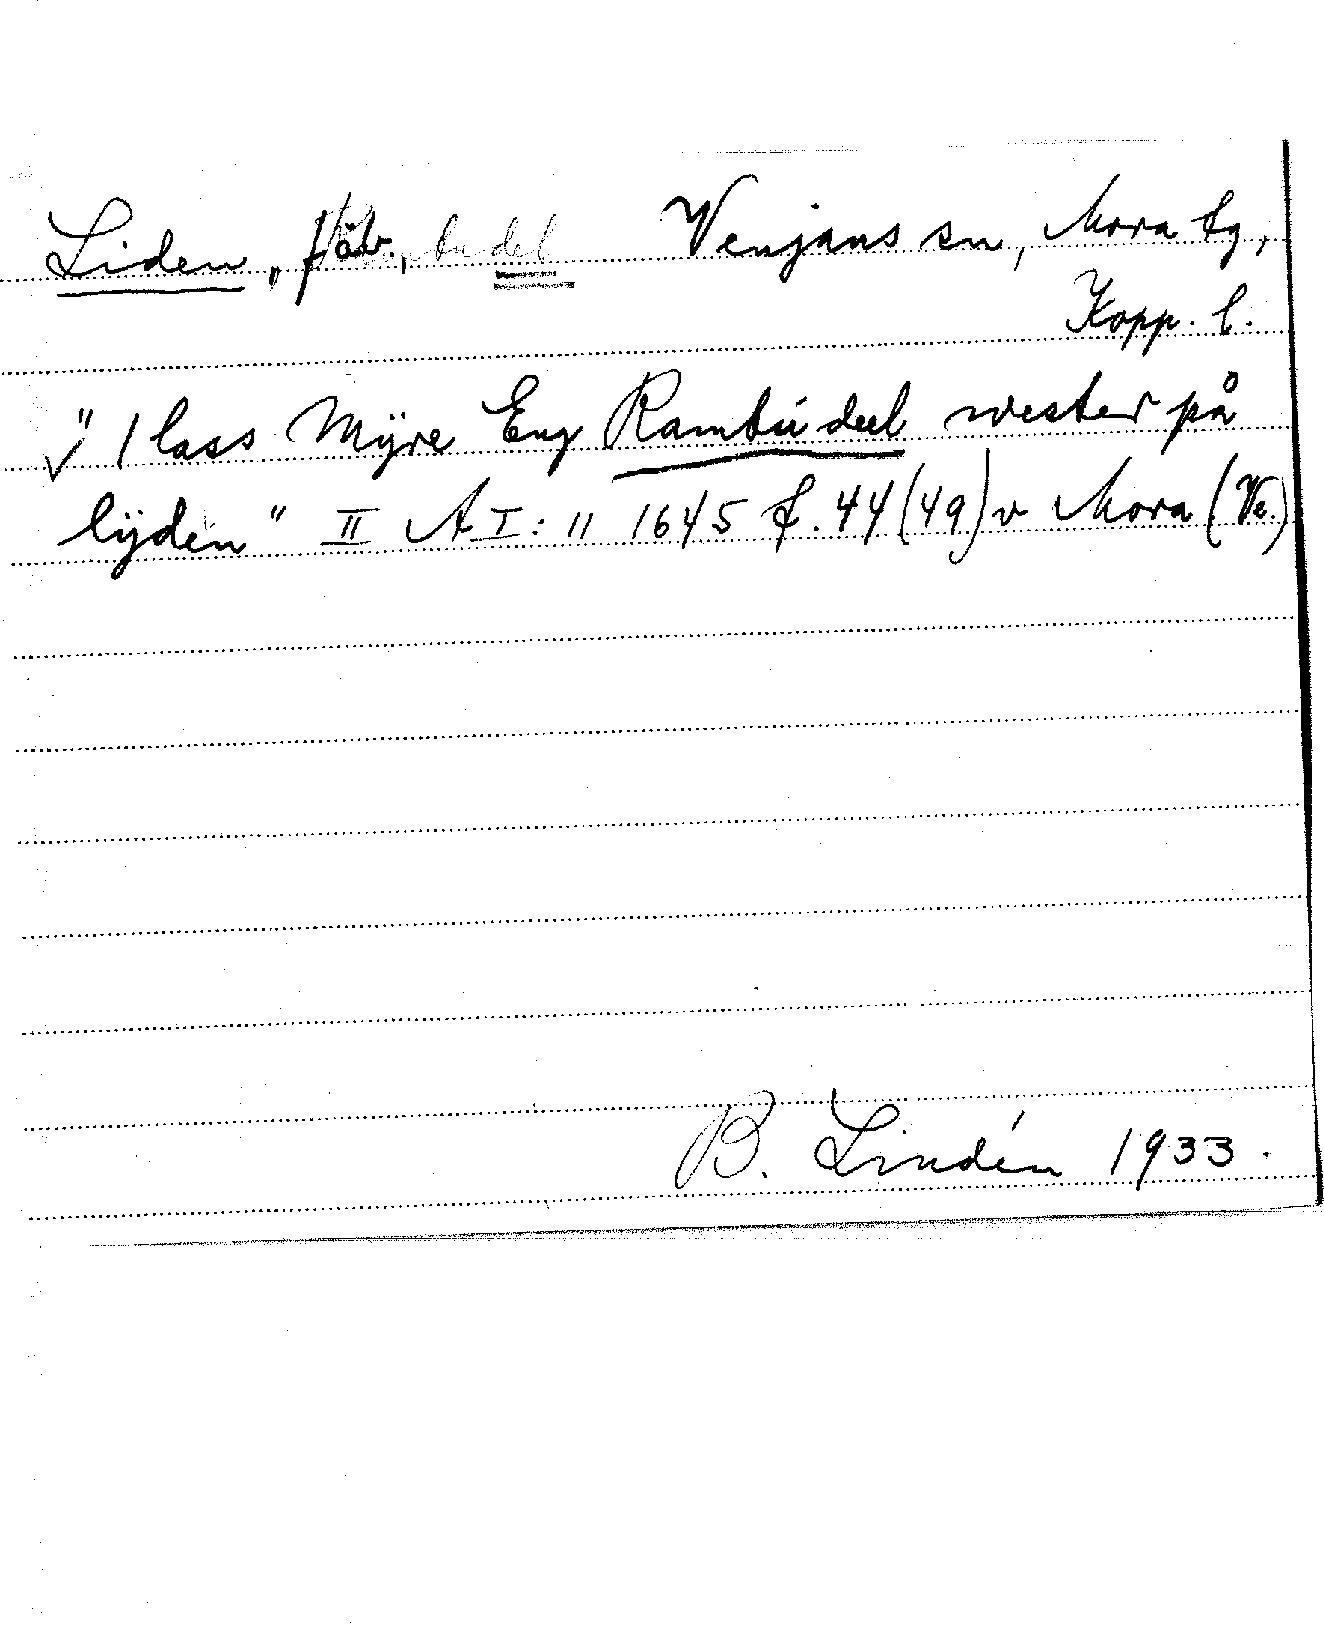 Liden, fäb., budel Venjans sn, Mora tg,
Kopp. l.
" 1 lass Mÿre Eng Rambúdeel wester på
lÿden " II A I: 11 1645 f. 44 (49) v Mora (Ve.)
B. Lindén 1933.